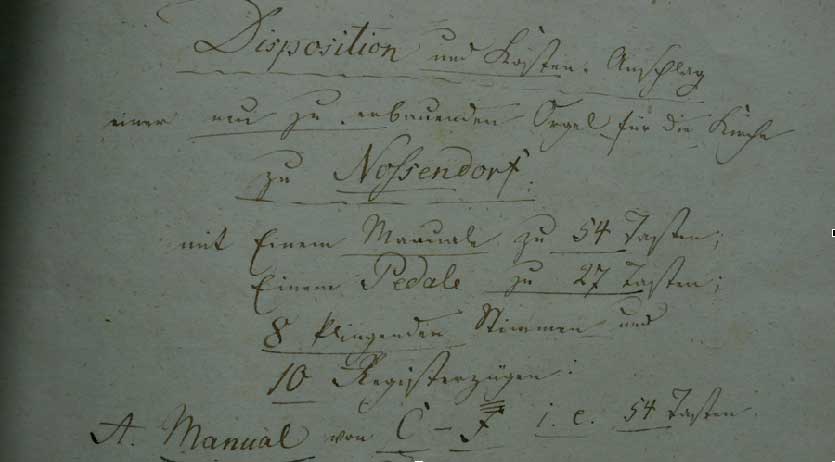 Disposition und Kosten-Anschlag
einer neu zu erbauenden Orgel für die Kirche
zu Nossendorf.
mit Einem Manuale zu 54 Tasten;
Einem Pedale zu 27 Tasten;
8 klingenden Stimmen und
10 Registerzügen:
A. Manual von C – F i. e. 54 Tasten